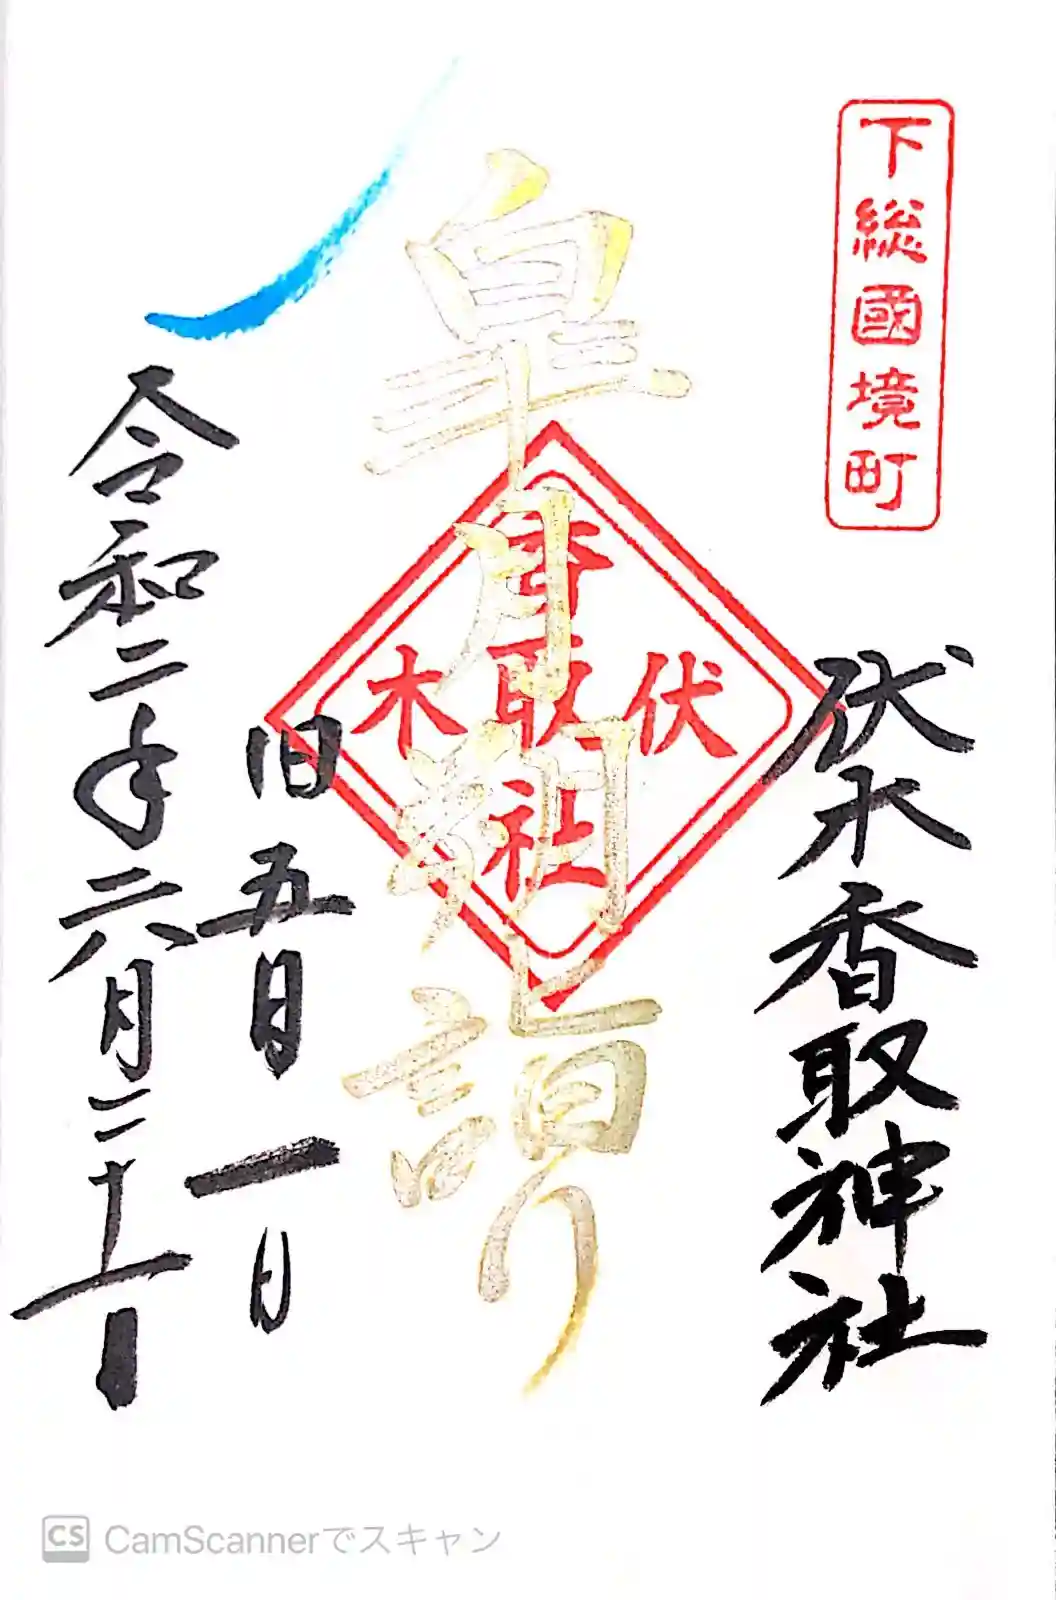 下総國境町
伏木香取神社
皐月朔詣り
伏木
香取社
旧五月一日
令和二年六月二十一日
CS CamScannerでスキャン